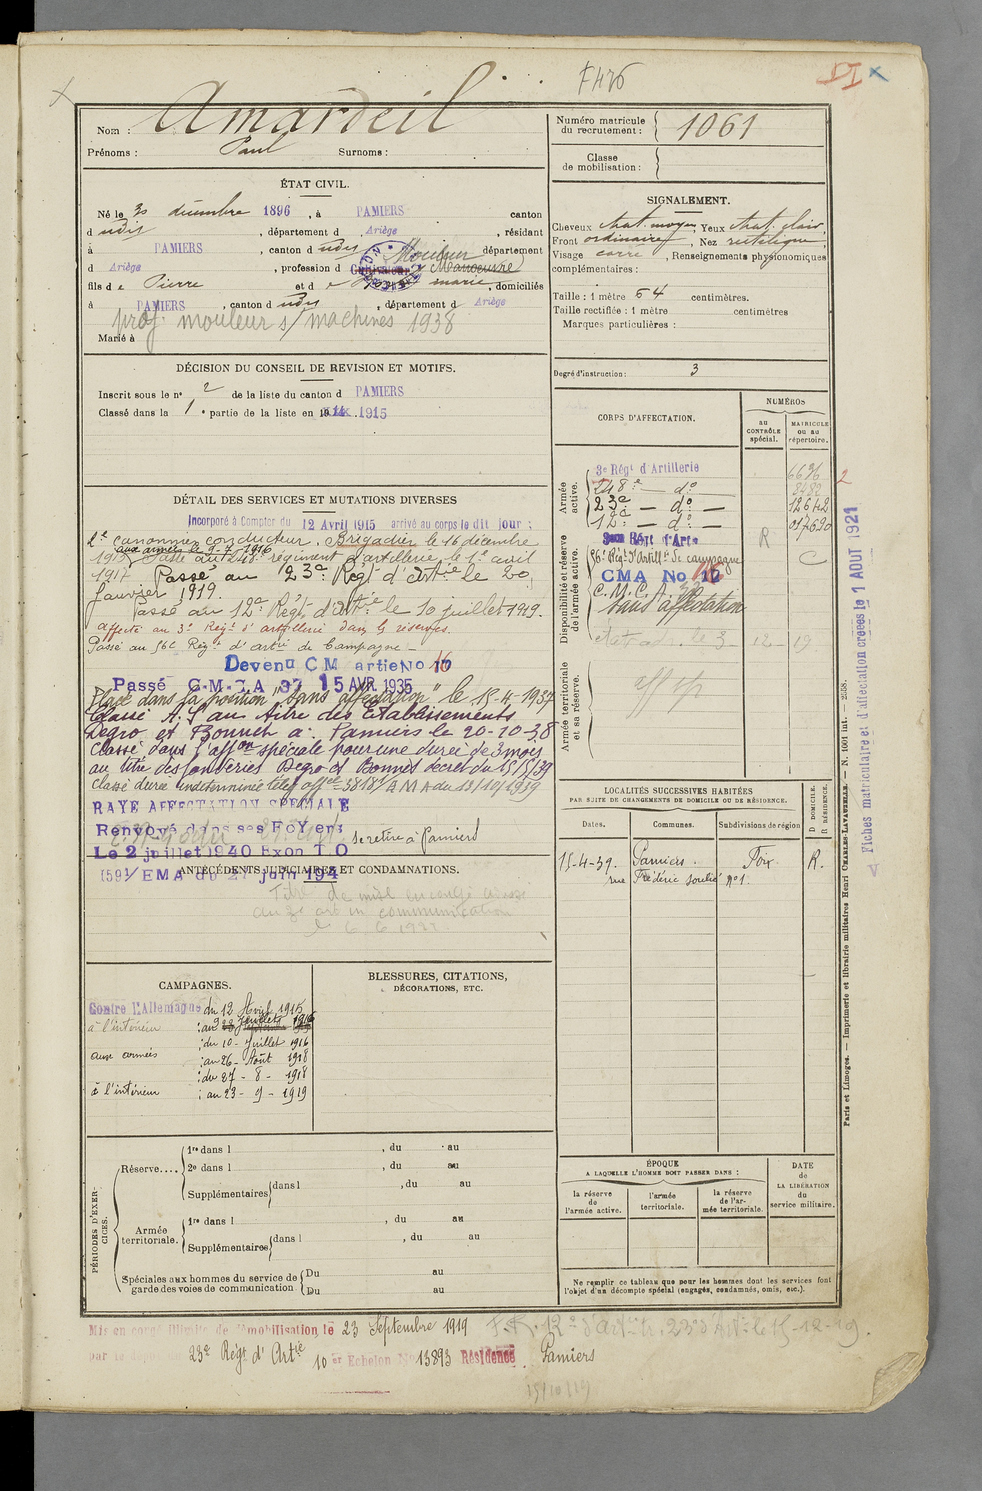 F476
Nom : Amardeil
Prénoms : Paul Surnoms :
Numéro matricule du recrutement : 1061
Classe de mobilisation :
ÉTAT CIVIL.
Né le 30 décembre 1896, à PAMIERS canton
d udit, département d Ariège, résidant
à PAMIERS, canton d udit département
d Ariège, profession d Cultivateur Mouleur Manoeuvre
fils de Pierre et de marie, domiciliés
à PAMIERS, canton d udit, département d Ariège
prof. mouleur s/ machines 1938
Marié à
SIGNALEMENT.
Cheveux chat. moyen, Yeux chat. clair,
Front ordinaire, Nez rectiligne
Visage carré, Renseignements physionomiques
complémentaires :
Taille : 1 mètre 64 centimètres.
Taille rectifiée : 1 mètre centimètres
Marques particulières :
Degré d'instruction : 3
DÉCISION DU CONSEIL DE REVISION ET MOTIFS.
Inscrit sous le n° 2 de la liste du canton d PAMIERS
Classé dans la 1e partie de la liste en 1915
DÉTAIL DES SERVICES ET MUTATIONS DIVERSES
Incorporé à Compter du 12 Avril 1915 arrivé au corps le dit jour :
2e canonnier conducteur. Brigadier le 16 décembre
1915 aux armées le 9-7-1916
Passé au 248e régiment d'artillerie le 1er avril
1917 Passé au 23e Régt d'artie le 20
janvier 1919.
Passé au 12e Régt d'artie le 10 juillet 1919.
affecté au 3e Régt d'artillerie dans les réserves.
Passé au 56e Régt d'artie de Campagne
Devenu C M artie No 16
Passé C.M.I.A 37 15 AVR 1935
Placé dans la position "sans affectation" le 15-4-1937
Classé A.S au titre des Établissements
Degro et Bonnet à Pamiers le 20-10-38
Classé dans l'affon spéciale pour une durée de 3 mois
au titre des fonderies Degro et Bonnet décret du 15/5/39
Classé durée indéterminée
RAYE AFFECTATION SPECIALE
Renvoyé dans ses FoYers
se retire à Pamiers
Le 2 juillet 1940 Exon T O
1591/EMA du 27 juin 194
ANTÉCÉDENTS JUDICIAIRES ET CONDAMNATIONS.
CORPS D'AFFECTATION.
NUMÉROS
au CONTRÔLE spécial.
MATRICULE ou au répertoire.
Armée active.
3e Régt d'Artillerie 6696
248e — do — 8482
23e — do — 12642
12e — do — 017620
Disponibilité et réserve de l'armée active.
3eme Régt d'Artie R
56e Régt d'Artille de campagne C
CMA No 16
sans affectation
Armée territoriale et sa réserve.
LOCALITÉS SUCCESSIVES HABITÉES
PAR SUITE DE CHANGEMENTS DE DOMICILE OU DE RÉSIDENCE.
Dates. Communes. Subdivisions de région D DOMICILE. R RÉSIDENCE.
15-4-39. Pamiers. Foix. R.
rue Frédéric Soulié no 1.
CAMPAGNES.
Contre l'Allemagne du 12 Avril 1915
à l'intérieur au 9 Juillet 1916
du 10 - Juillet 1916
aux armées au 26 - Août 1918
du 27 - 8 - 1918
à l'intérieur au 23 - 9 - 1919
BLESSURES, CITATIONS,
DÉCORATIONS, ETC.
PÉRIODES D'EXERCICES.
Réserve.... 1re dans l , du au
2e dans l , du au
Supplémentaires dans l , du au
Armée territoriale. 1re dans l , du au
Supplémentaires dans l , du au
Spéciales aux hommes du service de garde des voies de communication. Du au
Du au
ÉPOQUE
A LAQUELLE L'HOMME DOIT PASSER DANS :
la réserve de l'armée active.
l'armée territoriale.
la réserve de l'armée territoriale.
DATE de LA LIBÉRATION du service militaire.
Ne remplir ce tableau que pour les hommes dont les services font
l'objet d'un décompte spécial (engagés, condamnés, omis, etc.).
Mis en congé illimité de démobilisation le 23 Septembre 1919
par le dépôt 23e Régt d'Artie 10 er Echelon No 13893 Résidence Pamiers
Fiches matriculaire et d'affectation créées le 1 AOUT 1921
Paris et Limoges. — Imprimerie et librairie militaires Henri CHARLES-LAVAUZELLE. — N. 1601 int. — 2558.